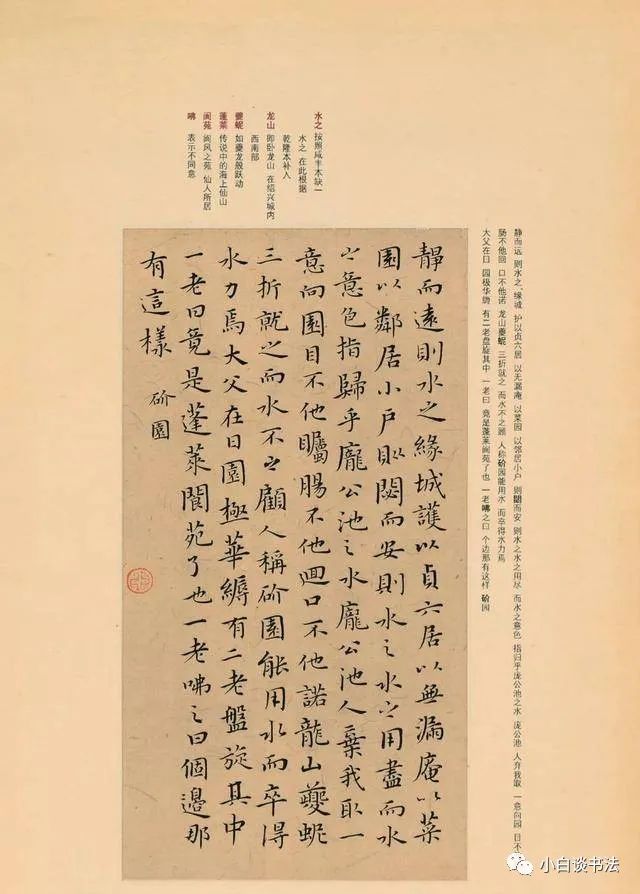 水之 按照咸丰本缺一
水之 在此根据
乾隆本补入
龙山 即卧龙山 在绍兴城内
西南部
夔蚭 如夔龙般跃动
蓬莱 传说中的海上仙山
阆苑 阆风之苑 仙人所居
咈 表示不同意
静而远 则水之 缘城 护以贞六居 以无漏庵 以菜园 以邻居小户 则閟而安 则水之水之用尽 而水之意色 指归乎庞公池之水 庞公池 人弃我取 一意向园 目不
肠不他回 口不他诺 龙山夔蚭 三折就之 而水不之顾 人称砎园能用水 而卒得水力焉
大父在日 园极华缛 有二老盘旋其中 一老曰 竟是蓬莱阆苑了也 一老咈之曰 个边那有这样 砎园
靜而遠則水之緣城護以貞六居以無漏庵以菜
園以鄰居小戶則閟而安則水之水之用盡而水
之意色指歸乎龐公池之水龐公池人棄我取一
意向園目不他矚腸不他迴口不他諾龍山夔蚭
三折就之而水不之顧人稱砎園能用水而卒得
水力焉大父在日園極華縟有二老盤旋其中
一老曰竟是蓬萊閬苑了也一老咈之曰個邊那
有這樣 砎園
小白谈书法